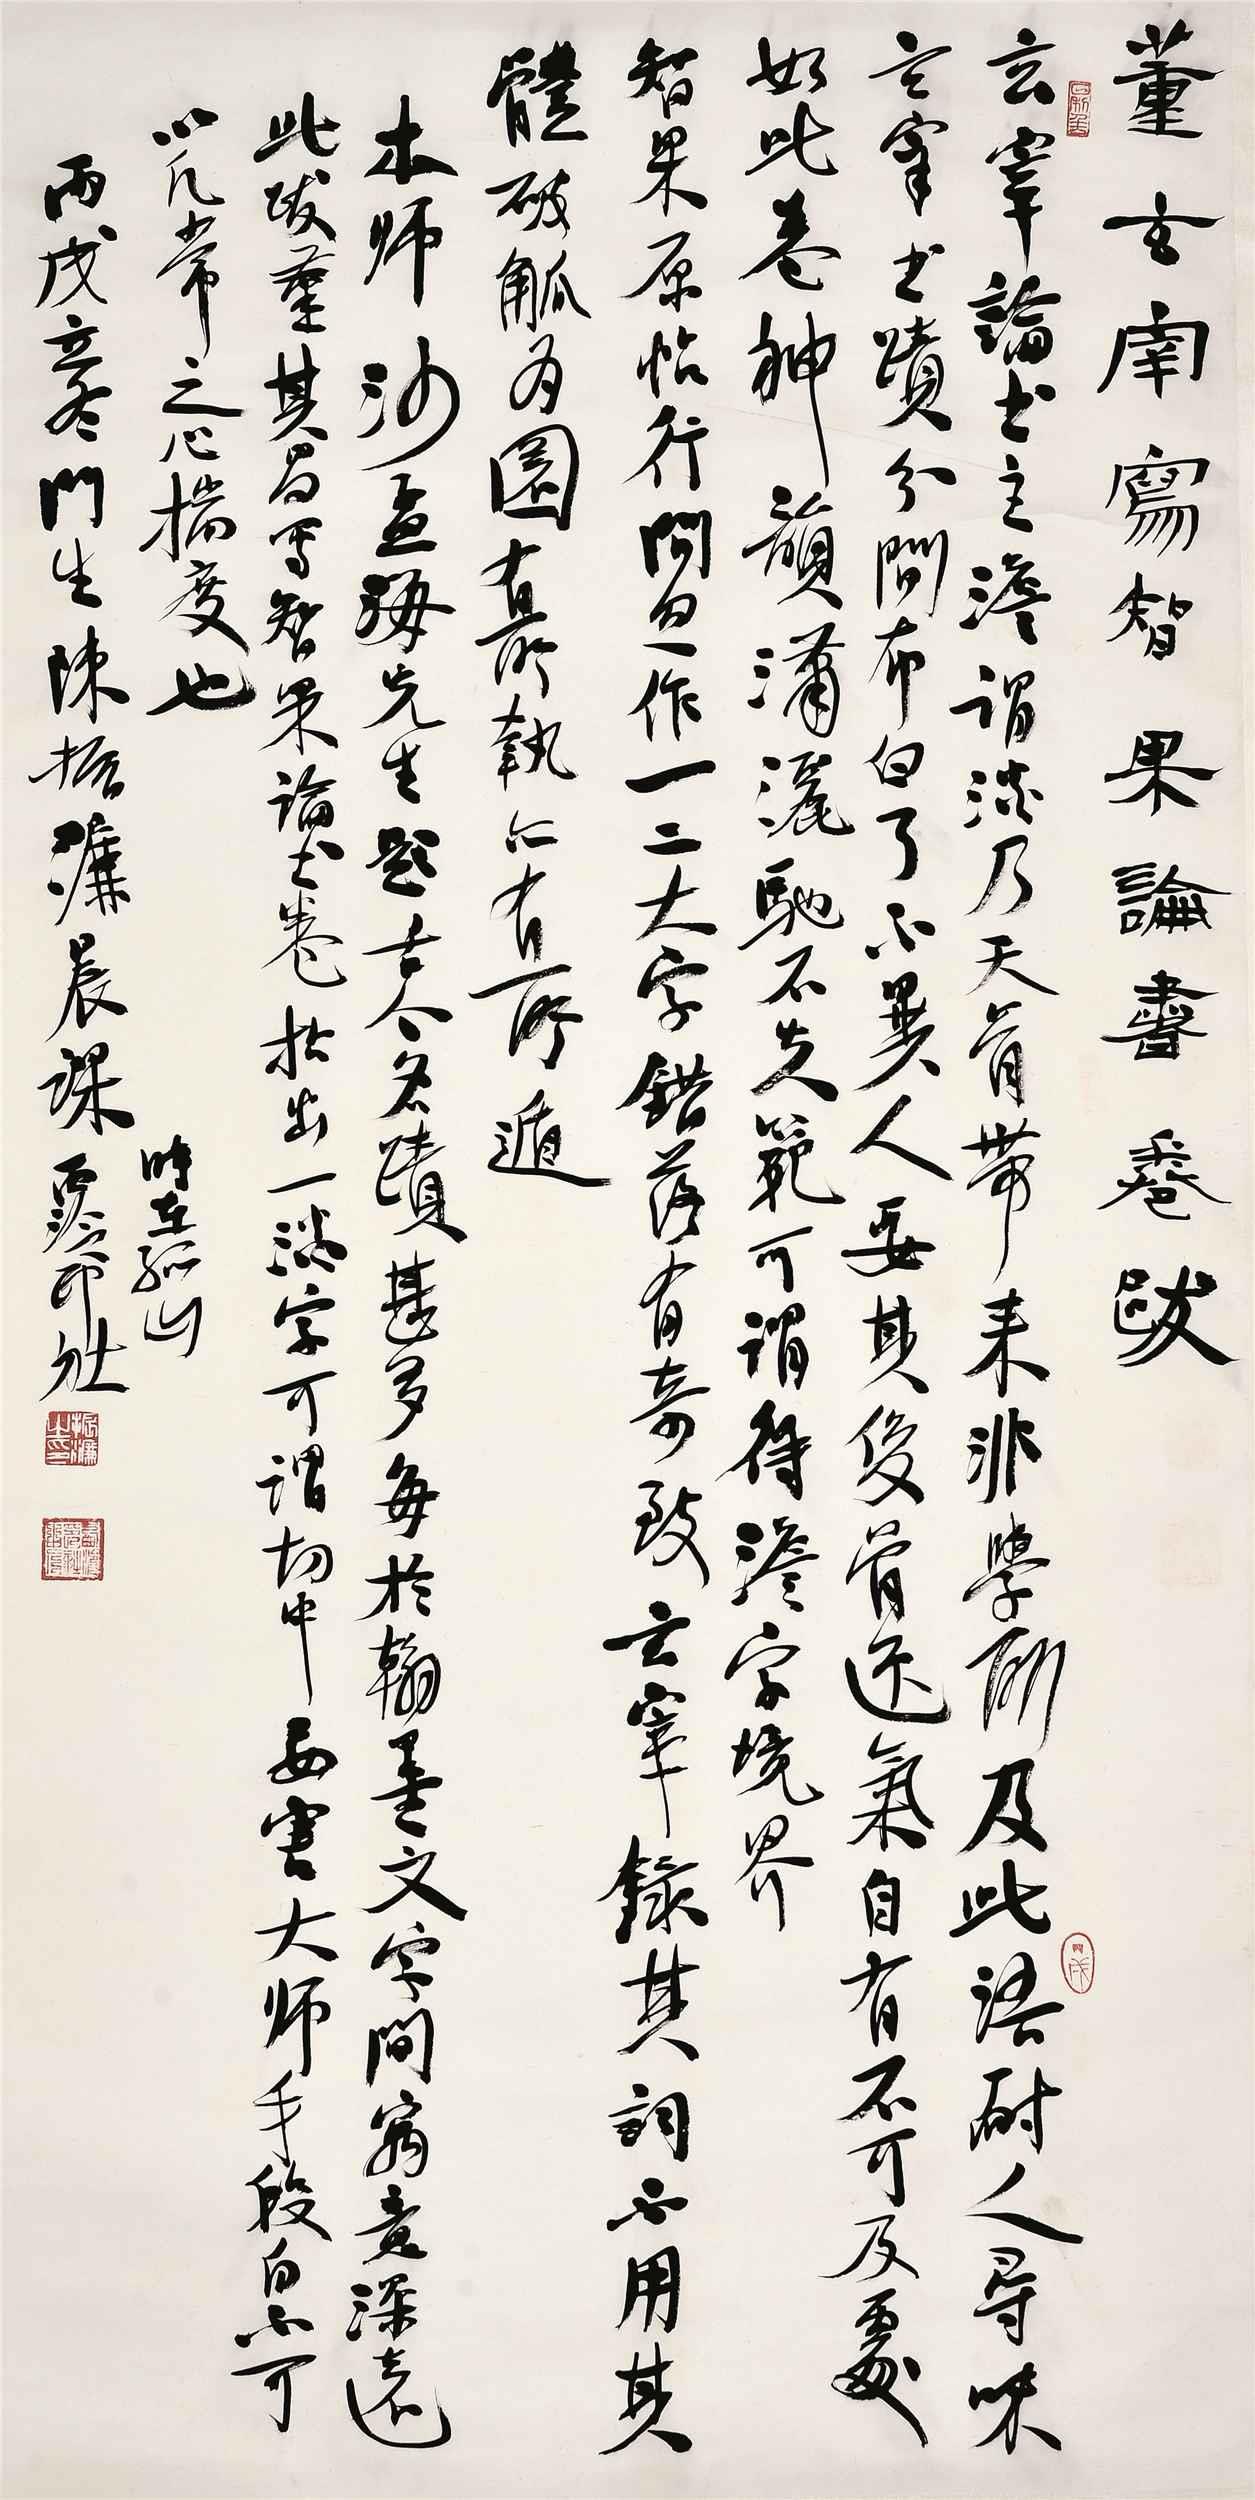 董玄宰寫智果論書卷跋
玄宰論書主澹謂淡乃天骨帶來非學所及此語耐人尋味
玄宰書蹟分間布白了不異人要其俊骨逸氣自有不可及處
如此卷神韻瀟灑馳不失範可謂得澹字境界
智果原帖行間忽作一二大字錯落有奇致玄宰錄其詞不用其
體破觚為圓有所執亦有所遁
本師沙孟海先生題古今名蹟甚多每於翰墨文字間寄意深遠
此跋董其昌寫智果論書卷拈出一淡字可謂切中要害大師手段皂不可
以凡常之心揣度也
丙戌立冬門生陳振濂晨課
時在孤山
西泠印社